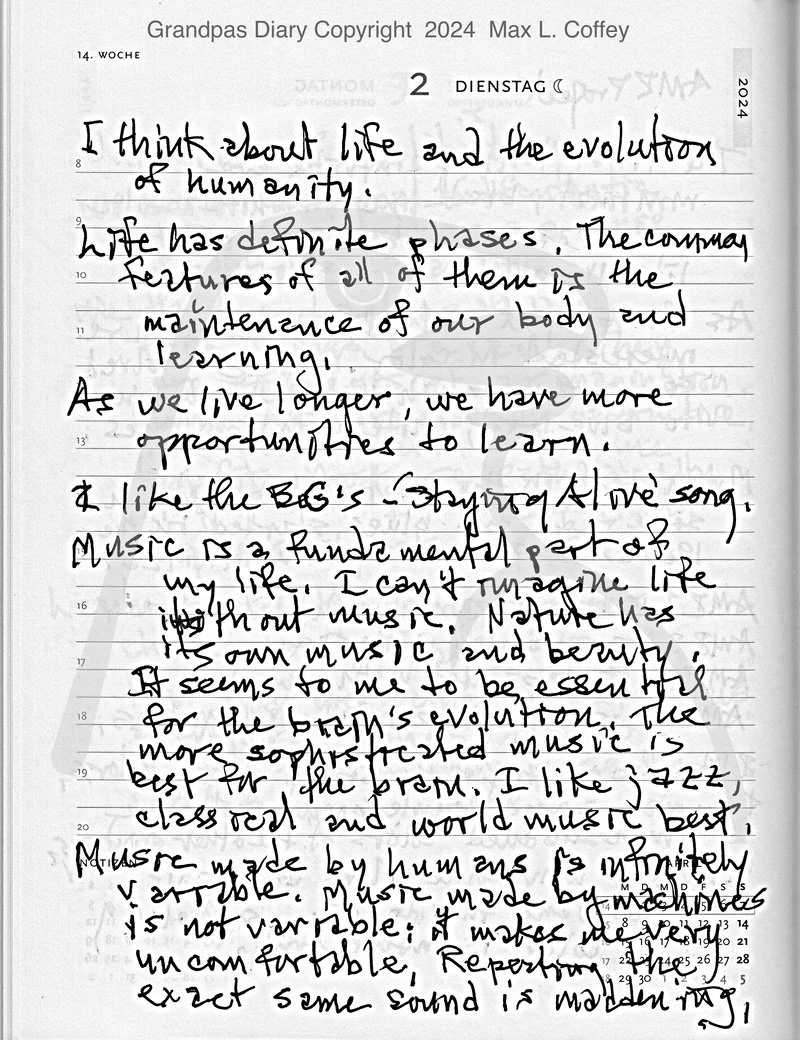 Grandpas Diary Copyright 2024 Max L. Coffey
14. WOCHE
2 DIENSTAG
2024
I think about life and the evolution
8
of humanity.
9
Life has definite phases. The common
10
features of all of them is the
maintenance of our body and
11
learning.
As we live longer, we have more
13
opportunities to learn.
I like the BG's - "Staying Alive" song.
Music is a fundamental part of
my life. I can't imagine life
16
without music. Nature has
its own music and beauty.
17
It seems to me to be essential
for the brain's evolution. The
18
more sophisticated music is
best for the brain. I like jazz,
19
classical and world music best.
20
Music made by humans is infinitely
NOTIZEN
variable. Music made by machines
M D M D F S S
is not variable; it makes me very
8 9 10 11 12 13 14
16 17 18 19 20 21
uncomfortable. Repeating the
27 28
exact same sound is maddening.
29 30 1 2 3 4 5